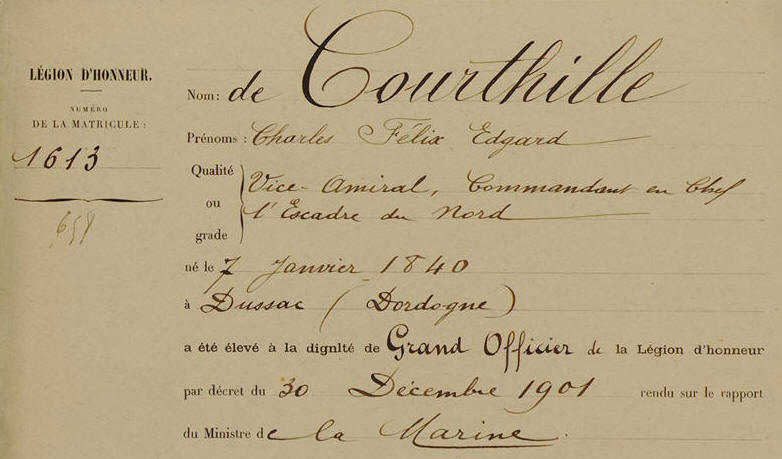 LÉGION D'HONNEUR.
NUMÉRO
DE LA MATRICULE :
1613
658
Nom : de Courthille
Prénoms : Charles Félix Edgard
Qualité
ou
grade
Vice-Amiral, Commandant en Chef
l'Escadre du Nord
né le 7 Janvier 1840
à Dussac (Dordogne)
a été élevé à la dignité de Grand Officier de la Légion d'honneur
par décret du 30 Décembre 1901 rendu sur le rapport
du Ministre de la Marine.